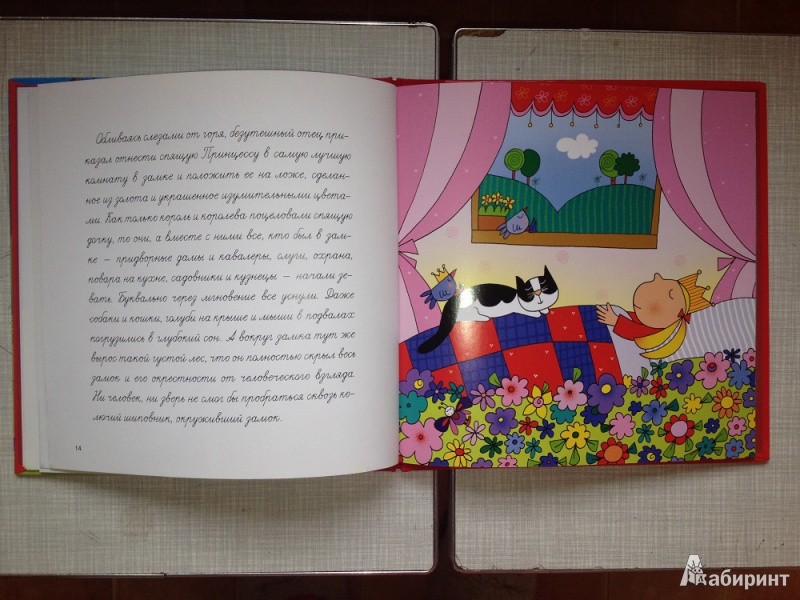 Обливаясь слезами от горя, безутешный отец при-
казал отнести спящую Принцессу в самую лучшую
комнату в замке и положить ее на ложе, сделан-
ное из золота и украшенное изумительными цвета-
ми. Как только король и королева поцеловали спящую
дочку, то они, а вместе с ними все, кто был в зам-
ке — придворные дамы и кавалеры, слуги, охрана,
повара на кухне, садовники и кузнецы — начали зе-
вать. Буквально через мгновение все уснули. Даже
собаки и кошки, голуби на крыше и мыши в подвалах
погрузились в глубокий сон. А вокруг замка тут же
вырос такой густой лес, что он полностью скрыл весь
замок и его окрестности от человеческого взгляда.
Ни человек, ни зверь не смог бы пробраться сквозь ко-
лючий шиповник, окруживший замок.
14
Лабиринт